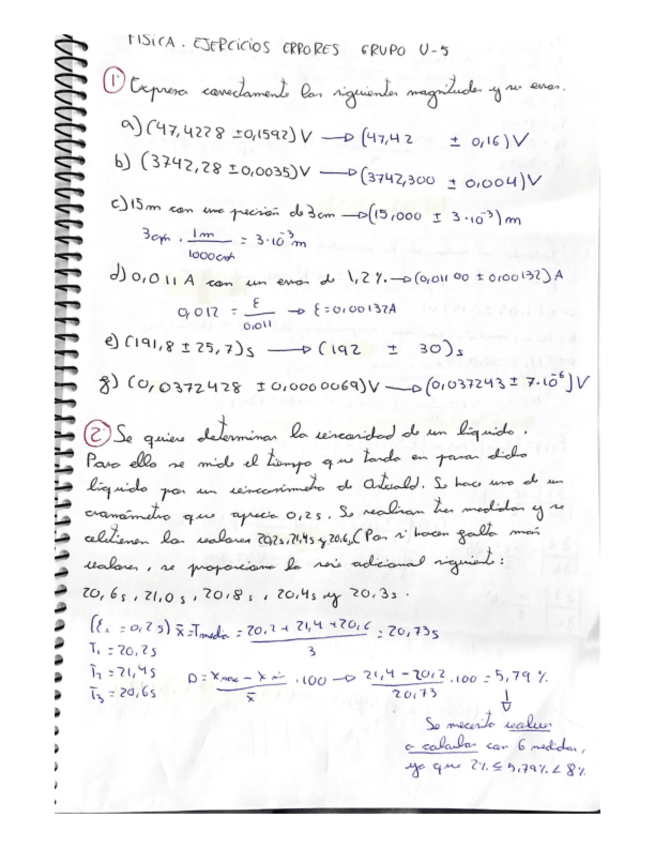 FISICA. EJERCICIOS ERRORES GRUPO U-5
① Expresa correctamente las siguientes magnitudes y su error.
a) (47,4228 ±0,1592)V → (47,42 ± 0,16)V
b) (3742,28 ±0,0035)V → (3742,300 ± 0,004)V
c) 15m con una precisión de 3cm → (15,000 ± 3·10⁻³)m
3cm · 1m/1000cm = 3·10⁻³m
d) 0,011 A con un error de 1,2%. → (0,01100 ± 0,00132)A
0,012 = ε/0,011 → ε=0,00132A
e) (191,8 ± 25,7)s → (192 ± 30)s
g) (0,0372428 ±0,0000069)V → (0,037243 ± 7·10⁻⁶)V
② Se quiere determinar la viscosidad de un líquido.
Para ello se mide el tiempo que tarda en pasar dicho
líquido por un viscosímetro de Ostwald. Se hace uso de un
cronómetro que aprecia 0,2s. Se realizan tres medidas y se
obtienen los valores 20,2s, 21,4s y 20,6s (Por si hacen falta más
valores, se proporciona la serie adicional siguiente:
20,6s, 21,0s, 20,8s, 20,4s y 20,3s.
(εs = 0,2s) x̄=Tmedia = (20,2 + 21,4 + 20,6)/3 = 20,73s
T₁ = 20,2s
T₂ = 21,4s
T₃ = 20,6s
D = (xmax - xmin)/x̄ · 100 → (21,4 - 20,2)/20,73 · 100 = 5,79 %
↓
Se necesita volver
a calcular con 6 medidas,
ya que 2% ≤ 5,79% < 8%